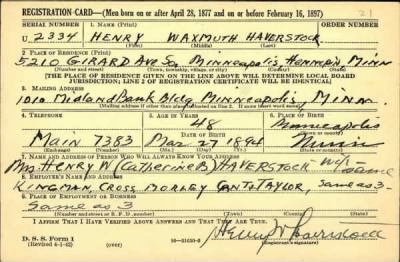 REGISTRATION CARD—(Men born on or after April 28, 1877 and on or before February 16, 1897)
SERIAL NUMBER 1. NAME (Print) ORDER NUMBER
U 2334 HENRY WAXMUTH HAVERSTOCK
(First) (Middle) (Last)
2. PLACE OF RESIDENCE (Print)
5210 GIRARD AVE So Minneapolis Hennepin Minn
(Number and street) (Town, township, village, or city) (County) (State)
[THE PLACE OF RESIDENCE GIVEN ON THE LINE ABOVE WILL DETERMINE LOCAL BOARD
JURISDICTION; LINE 2 OF REGISTRATION CERTIFICATE WILL BE IDENTICAL]
3. MAILING ADDRESS
1010 Midland Bank Bldg Minneapolis Minn.
(Mailing address if other than place indicated on line 2. If same insert word same)
4. TELEPHONE 5. AGE IN YEARS 6. PLACE OF BIRTH
48 Minneapolis
DATE OF BIRTH (Town or county)
Main 7383 Mar 27 1894 Minn
(Exchange) (Number) (Mo.) (Day) (Yr.) (State or country)
7. NAME AND ADDRESS OF PERSON WHO WILL ALWAYS KNOW YOUR ADDRESS
Mrs. HENRY W (Catherine B) HAVERSTOCK same
8. EMPLOYER'S NAME AND ADDRESS
KINGMAN, CROSS, MORLEY CANT & TAYLOR, Same as 3
9. PLACE OF EMPLOYMENT OR BUSINESS
Same as 3
(Number and street or R. F. D. number) (Town) (County) (State)
I AFFIRM THAT I HAVE VERIFIED ABOVE ANSWERS AND THAT THEY ARE TRUE.
D. S. S. Form 1
(Revised 4-1-42) (over)
Henry W Haverstock
(Registrant's signature)